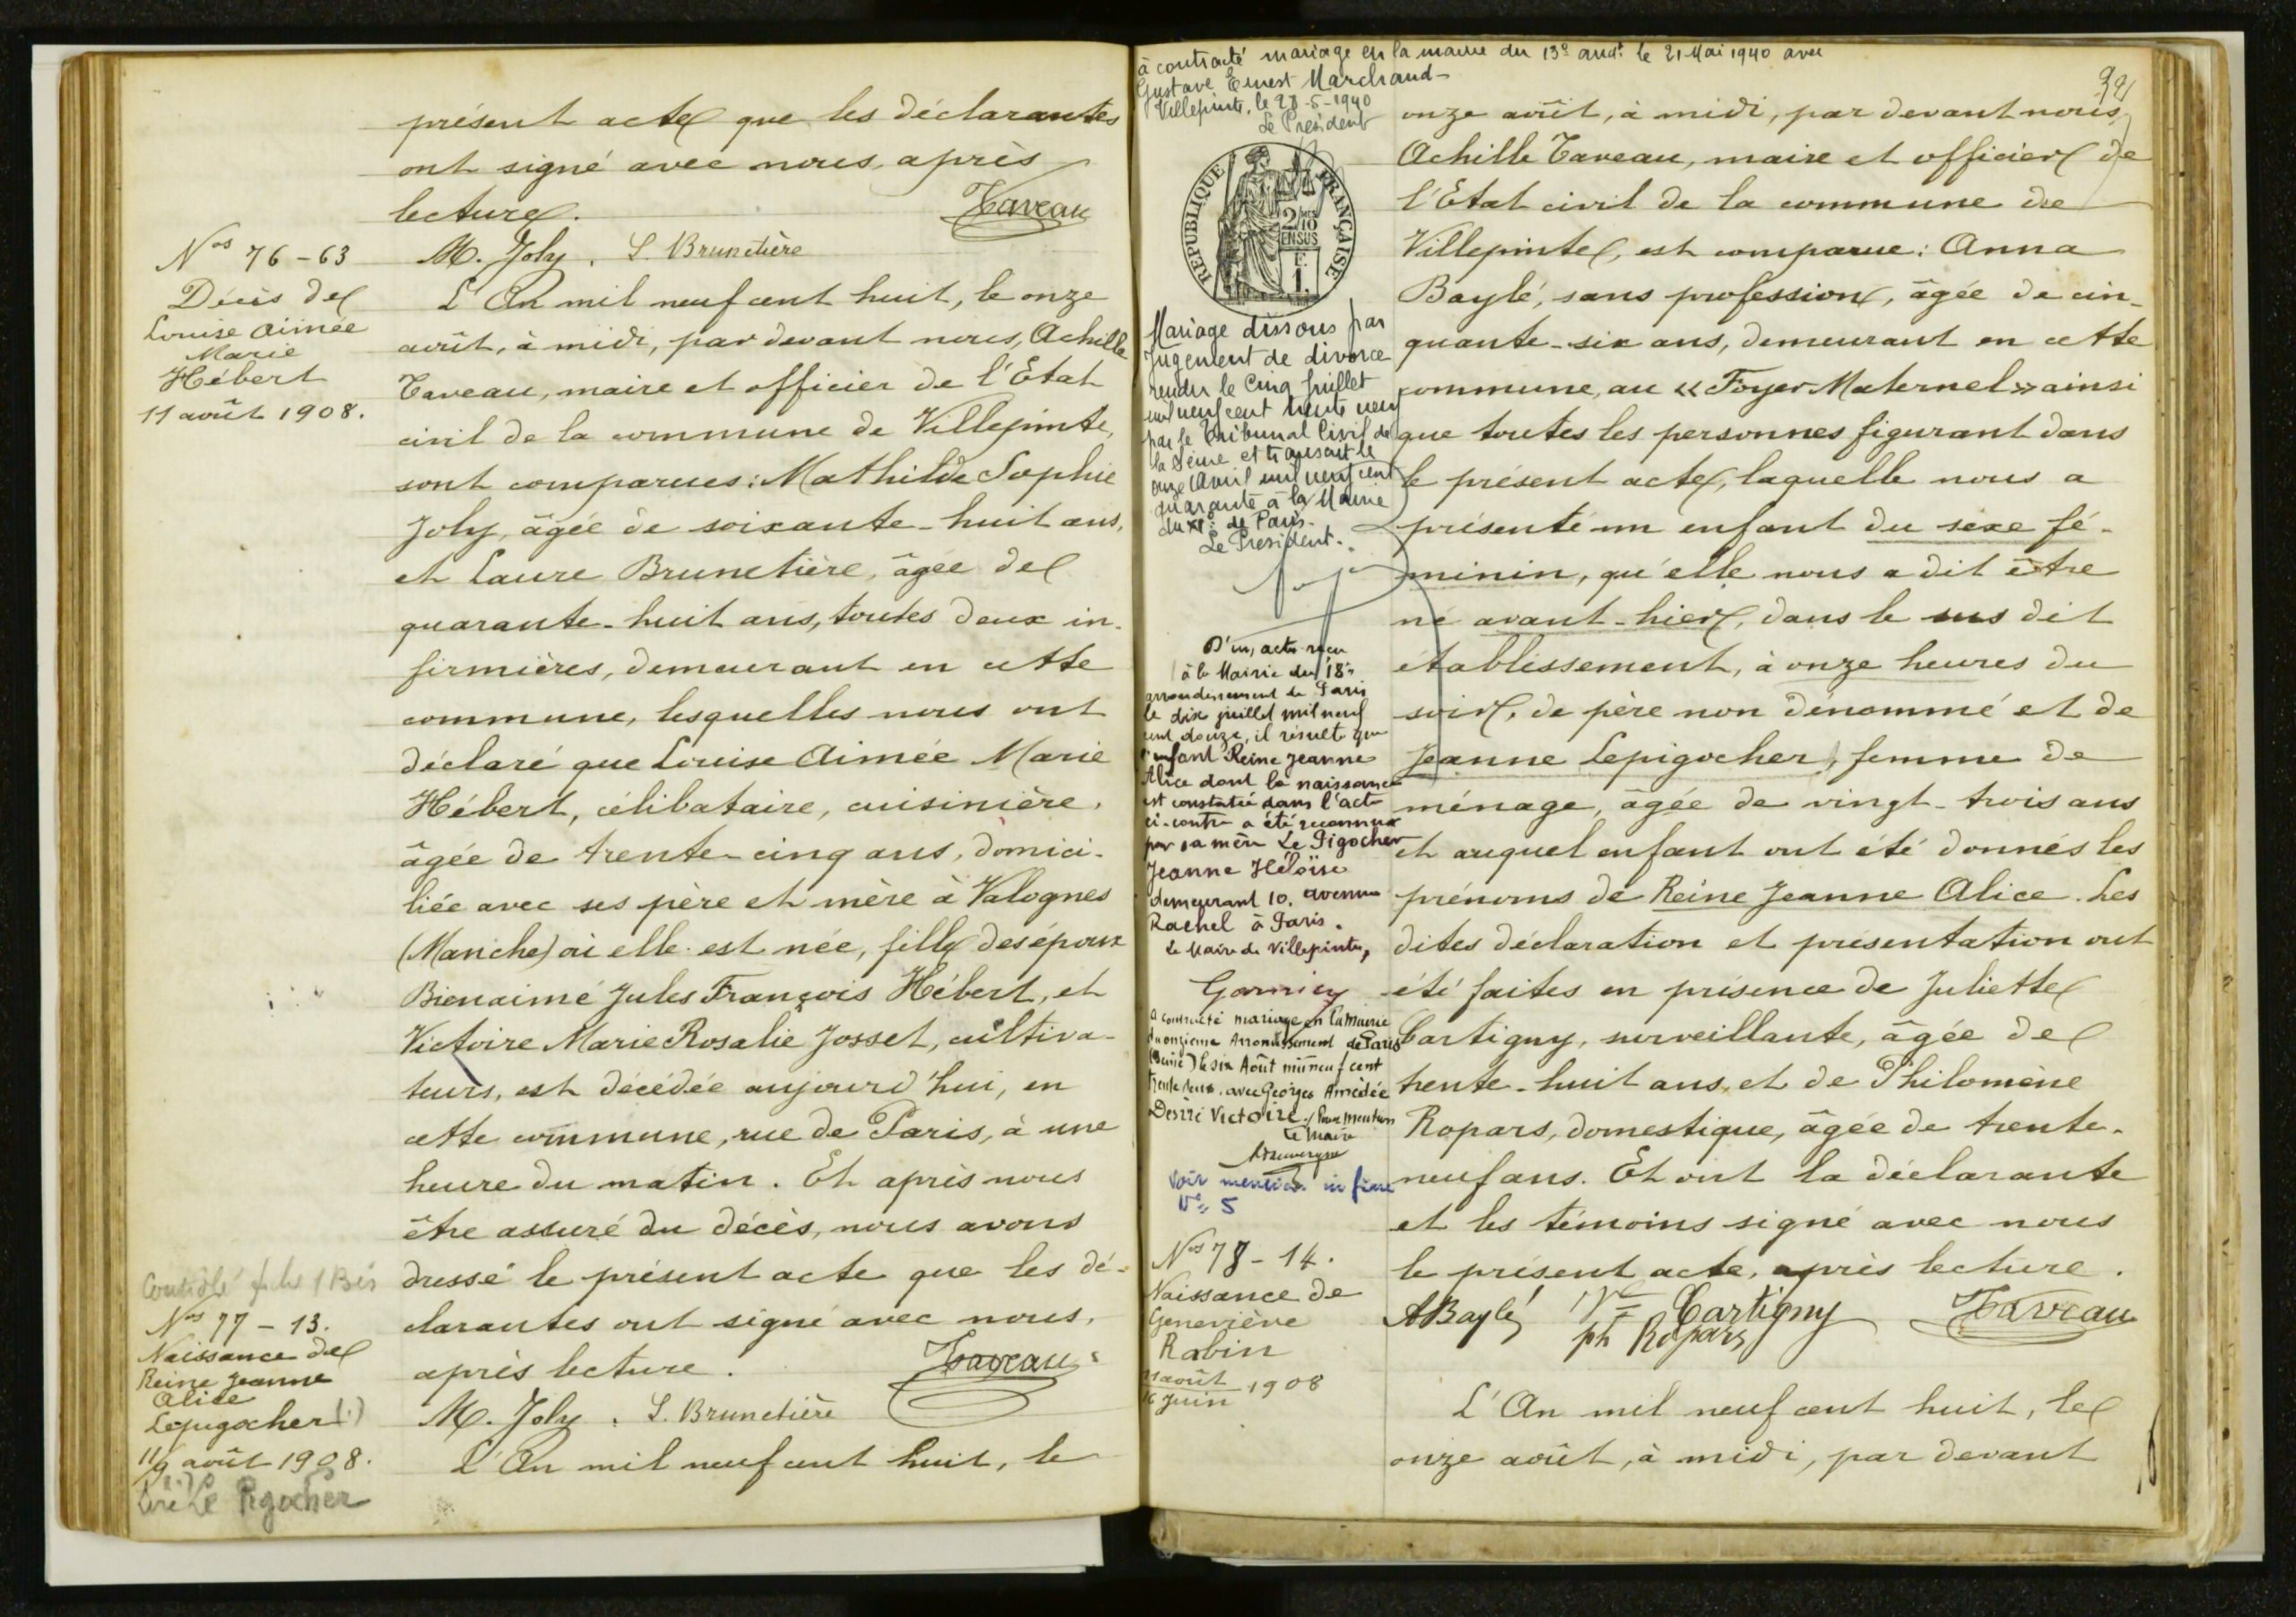 présent acte que les déclarantes
ont signé avec nous, après
lecture. Taveau
M. Joly. L. Brunetière
Nos 76-63
Décès de
Louise Aimée
Marie
Hébert
11 août 1908.
L'An mil neuf cent huit, le onze
août, à midi, par devant nous, Achille
Taveau, maire et officier de l'Etat
civil de la commune de Villepinte,
sont comparues: Mathilde Sophie
Joly, âgée de soixante-huit ans,
et Laure Brunetière, âgée de
quarante-huit ans, toutes deux in-
firmières, demeurant en cette
commune, lesquelles nous ont
déclaré que Louise Aimée Marie
Hébert, célibataire, cuisinière,
âgée de trente-cinq ans, domici-
liée avec ses père et mère à Valognes
(Manche) où elle est née, fille des époux
Bienaimé Jules François Hébert, et
Victoire Marie Rosalie Josset, cultiva-
teurs, est décédée aujourd'hui, en
cette commune, rue de Paris, à une
heure du matin. Et après nous
être assuré du décès, nous avons
dressé le présent acte que les dé-
clarantes ont signé avec nous,
après lecture. Taveau
M. Joly. L. Brunetière
Contrôlé 1 Bis
Nos 77-13.
Naissance de
Reine Jeanne
Alice
Lepigocher (1)
11/9 août 1908.
(1)
Lire Le Pigocher
L'An mil neuf cent huit, le
à contracté mariage en la mairie du 13e arrdt le 21 Mai 1940 avec
Gustave Ernest Marchand-
Villepinte, le 28-5-1940
Le Président
39
REPUBLIQUE FRANÇAISE
2/10
EN SUS
F.
1.
Mariage dissous par
Jugement de divorce
rendu le Cinq Juillet
mil neuf cent trente neuf
par le Tribunal Civil de
la Seine et transcrit le
onze Avril mil neuf cent
quarante à la Mairie
du XIe de Paris.
Le Président.
D'un acte reçu
à la Mairie du 18e
arrondissement de Paris
le dix juillet mil neuf
cent douze, il résulte que
l'enfant Reine Jeanne
Alice dont la naissance
est constatée dans l'acte
ci-contre a été reconnue
par sa mère Le Pigocher
Jeanne Héloïse
demeurant 10, avenue
Rachel à Paris.
Le Maire de Villepinte,
a contracté mariage en la Mairie
du onzième Arrondissement de Paris
(Seine) le six Août mil neuf cent
trente deux, avec Georges Amédée
Désiré Victoire. / Pour mention
Le Maire
Voir mention in fine
No 5
Nos 78-14.
Naissance de
Geneviève
Rabin
11 août
1908
Juin
onze août, à midi, par devant nous,
Achille Taveau, maire et officier de
l'Etat civil de la commune de
Villepinte, est comparue: Anna
Baylé, sans profession, âgée de cin-
quante-six ans, demeurant en cette
commune, au «Foyer Maternel» ainsi
que toutes les personnes figurant dans
le présent acte, laquelle nous a
présenté un enfant du sexe fé-
minin, qu'elle nous a dit être
né avant-hier, dans le sus dit
établissement, à onze heures du
soir, de père non dénommé et de
Jeanne Lepigocher, femme de
ménage, âgée de vingt-trois ans
et auquel enfant ont été donnés les
prénoms de Reine Jeanne Alice. Les
dites déclaration et présentation ont
été faites en présence de Juliette
Cartigny, surveillante, âgée de
trente-huit ans, et de Philomène
Ropars, domestique, âgée de trente-
neuf ans. Et ont la déclarante
et les témoins signé avec nous
le présent acte, après lecture.
ABaylé Cartigny Taveau
ph Ropars
L'An mil neuf cent huit, le
onze août, à midi, par devant